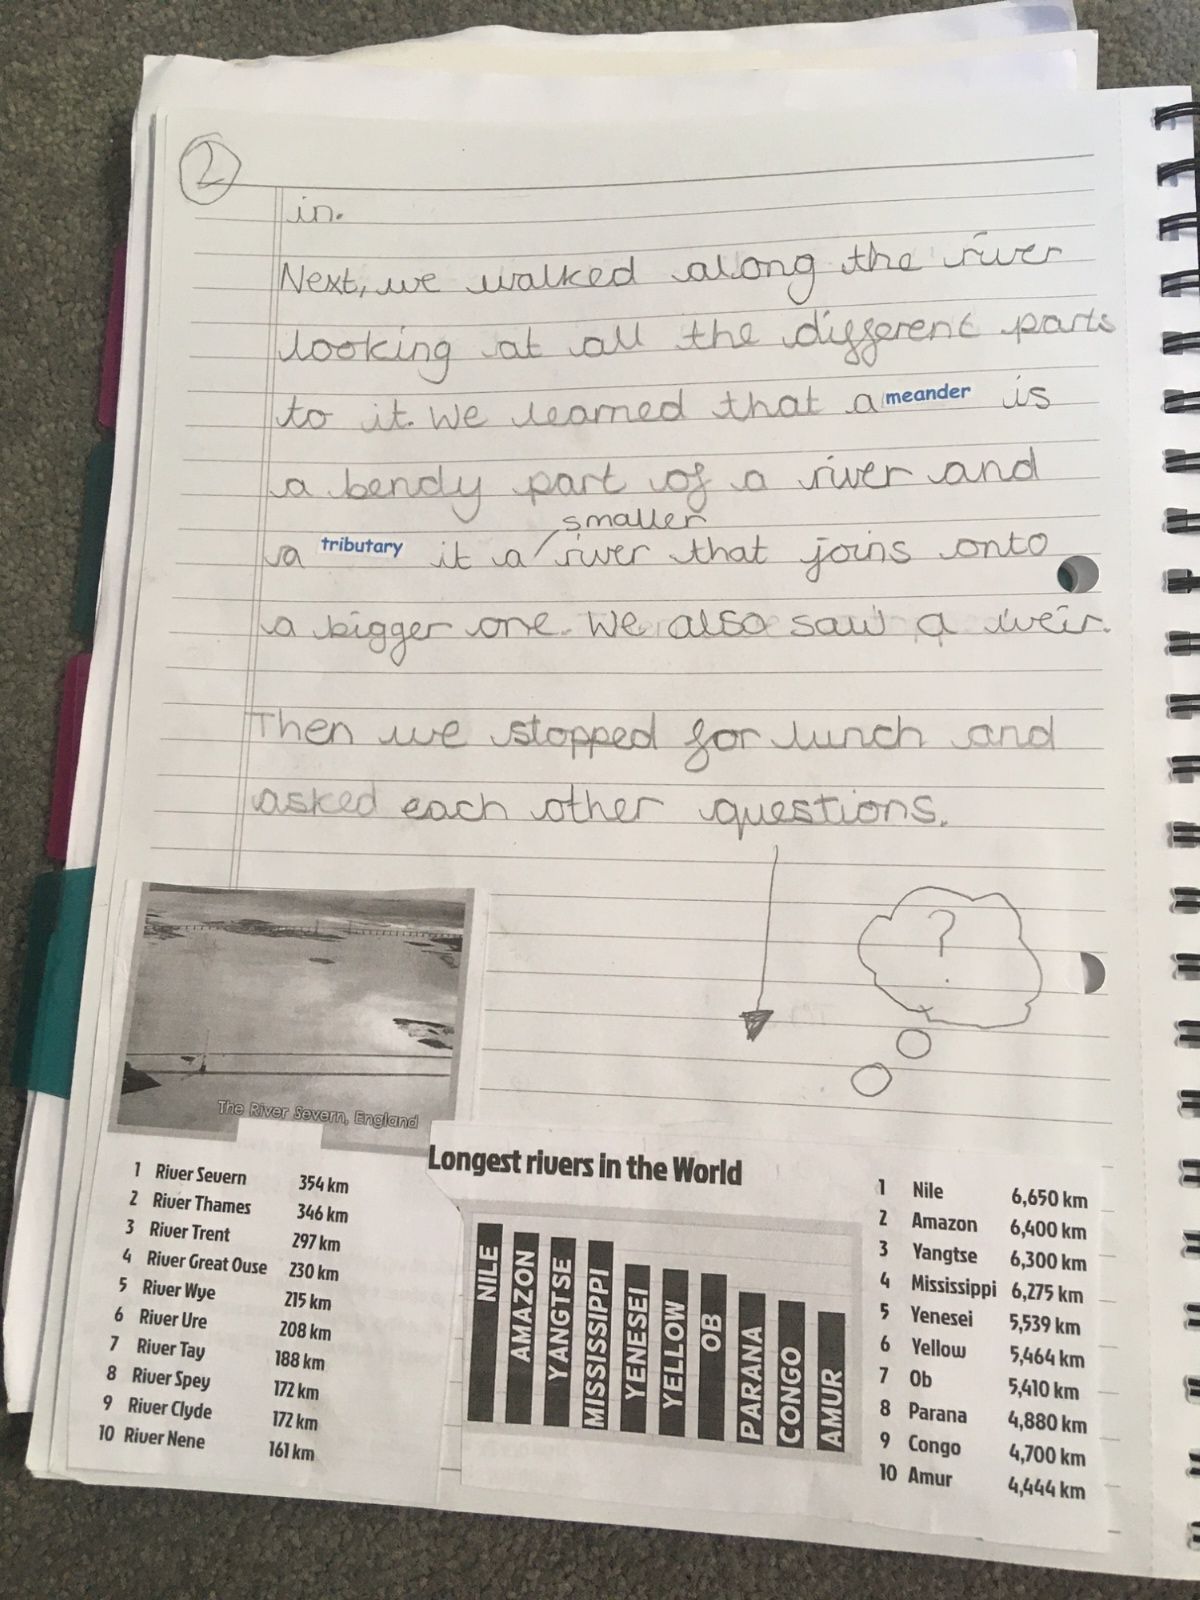 2
in.
Next, we walked along the river
looking at all the different parts
to it. We learned that a meander is
a bendy part of a river and
smaller
a tributary it a river that joins onto
a bigger one. We also saw a weir.
Then we stopped for lunch and
asked each other questions.
?
The River Severn, England
1 River Severn 354 km
2 River Thames 346 km
3 River Trent 297 km
4 River Great Ouse 230 km
5 River Wye 215 km
6 River Ure 208 km
7 River Tay 188 km
8 River Spey 172 km
9 River Clyde 172 km
10 River Nene 161 km
Longest rivers in the World
NILE
AMAZON
YANGTSE
MISSISSIPPI
YENESEI
YELLOW
OB
PARANA
CONGO
AMUR
1 Nile 6,650 km
2 Amazon 6,400 km
3 Yangtse 6,300 km
4 Mississippi 6,275 km
5 Yenesei 5,539 km
6 Yellow 5,464 km
7 Ob 5,410 km
8 Parana 4,880 km
9 Congo 4,700 km
10 Amur 4,444 km